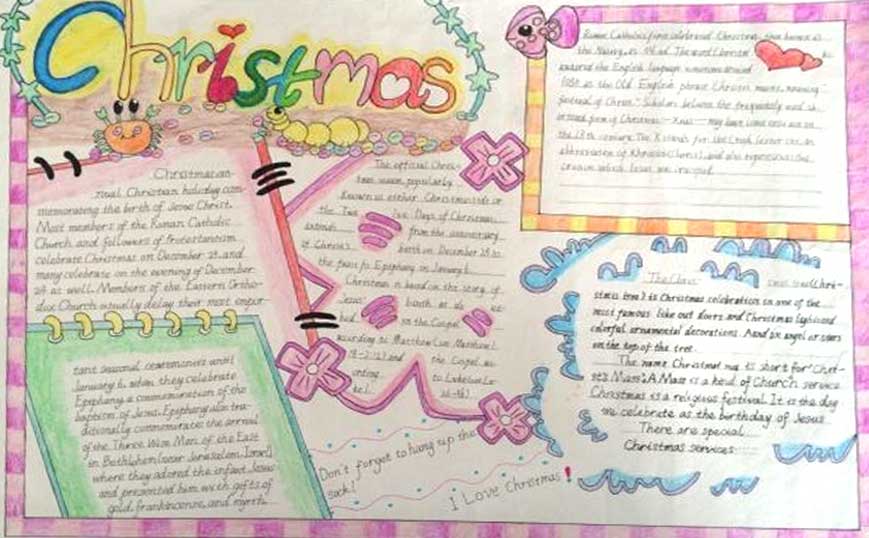 Christmas
Christmas an-
nual Christian holiday com-
memorating the birth of Jesus Christ.
Most members of the Roman Catholic
Church and followers of Protestantism
celebrate Christmas on December 25, and
many celebrate on the evening of December
24 as well. Members of the Eastern Ortho-
dox Church usually delay their most impor-
tant seasonal ceremonies until
January 6, when they celebrate
Epiphany, a commemoration of the
baptism of Jesus. Epiphany also tra-
ditionally commemorates the arrival
of the Three Wise Men of the East
in Bethlehem (near Jerusalem, Israel)
where they adored the infant Jesus
and presented him with gifts of
gold, frankincense, and myrrh.
The official Chris-
tmas season, popularly
known as either Christmastide or
the Twelve Days of Christmas,
extends from the anniversary
of Christ's birth on December 25 to
the feast to Epiphany on January 6.
Christmas is based on the story of
Jesus' birth as de
bed in the Gospel
according to Matthew (see Matthew
and the Gospel ac
cording to Luke (see Lu
ke
Don't forget to hang up the
sock!
I Love Christmas!
Roman Catholics first celebrated Christmas, then known as
the English language sometime around
1050 as the Old English phrase Christes maesse, meaning
festival of Christ." Scholars believe the frequently used sh-
ortened form of Christmas - Xmas - may have come into use in
the 13th century. The X stands for the Greek letter chi, an
abbreviation of Khristos (Christ), and also represents the
cross on which Jesus was
(Chri-
stmas tree) is Christmas celebration in one of the
most famous
colorful ornamental decorations. angel or stars
on the top of the tree.
The name Christmas is short for "Chri-
st's Mass". A Mass is a kind of Church service.
Christmas is a religious festival. It is the day
we celebrate as the birthday of Jesus.
There are special
Christmas services